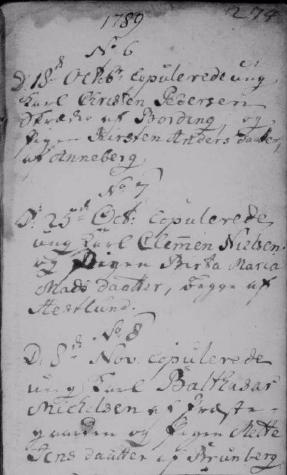 1789 274
No 6
D: 18de Octbr. copulerede ung
Karl Christen Pedersen
Skræder af Bording, og
Pigen Kirsten Anders daatter,
af Anneberg.
No 7
D: 25de Oct: copulerede
ung Karl Clemen Nielsen
og Pigen Birta Maria
Mads daatter, begge af
Hestlund.
No 8
D. 8de Nov. copulerede
ung Karl Balthasar
Michelsen af Præste-
gaarden og Pigen Mette
Jens daatter af Brunberg